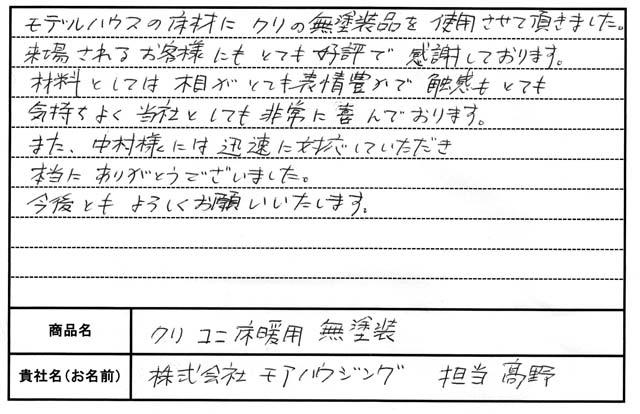 モデルハウスの床材に クリの無塗装品を 使用させて頂きました。
来場されるお客様にもとても好評で 感謝しております。
材料としては 木目がとても表情豊かで 触感もとても
気持ちよく 当社としても非常に喜んでおります。
また、中村様には迅速に対応していただき
本当に ありがとうございました。
今後とも よろしくお願いいたします。
商品名 クリ ユニ床暖用 無塗装
貴社名(お名前) 株式会社 モアハウジング 担当 髙野